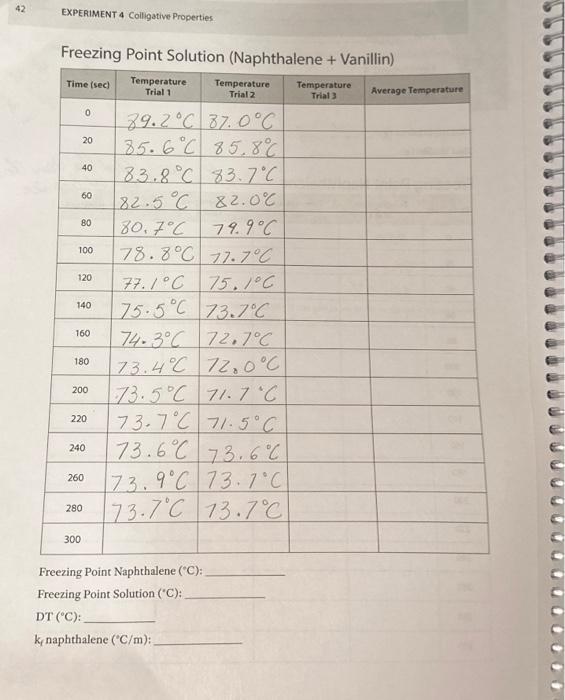 42
EXPERIMENT 4 Colligative Properties
Freezing Point Solution (Naphthalene + Vanillin)
Time (sec) Temperature Trial 1 Temperature Trial 2 Temperature Trial 3 Average Temperature
0 89.2°C 87.0°C
20 85.6°C 85.8°C
40 83.8°C 83.7°C
60 82.5°C 82.0°C
80 80.7°C 79.9°C
100 78.8°C 77.7°C
120 77.1°C 75.1°C
140 75.5°C 73.7°C
160 74.3°C 72.7°C
180 73.4°C 72.0°C
200 73.5°C 71.7°C
220 73.7°C 71.5°C
240 73.6°C 73.6°C
260 73.9°C 73.7°C
280 73.7°C 73.7°C
300
Freezing Point Naphthalene (°C):
Freezing Point Solution (°C):
DT (°C):
kf naphthalene (°C/m):